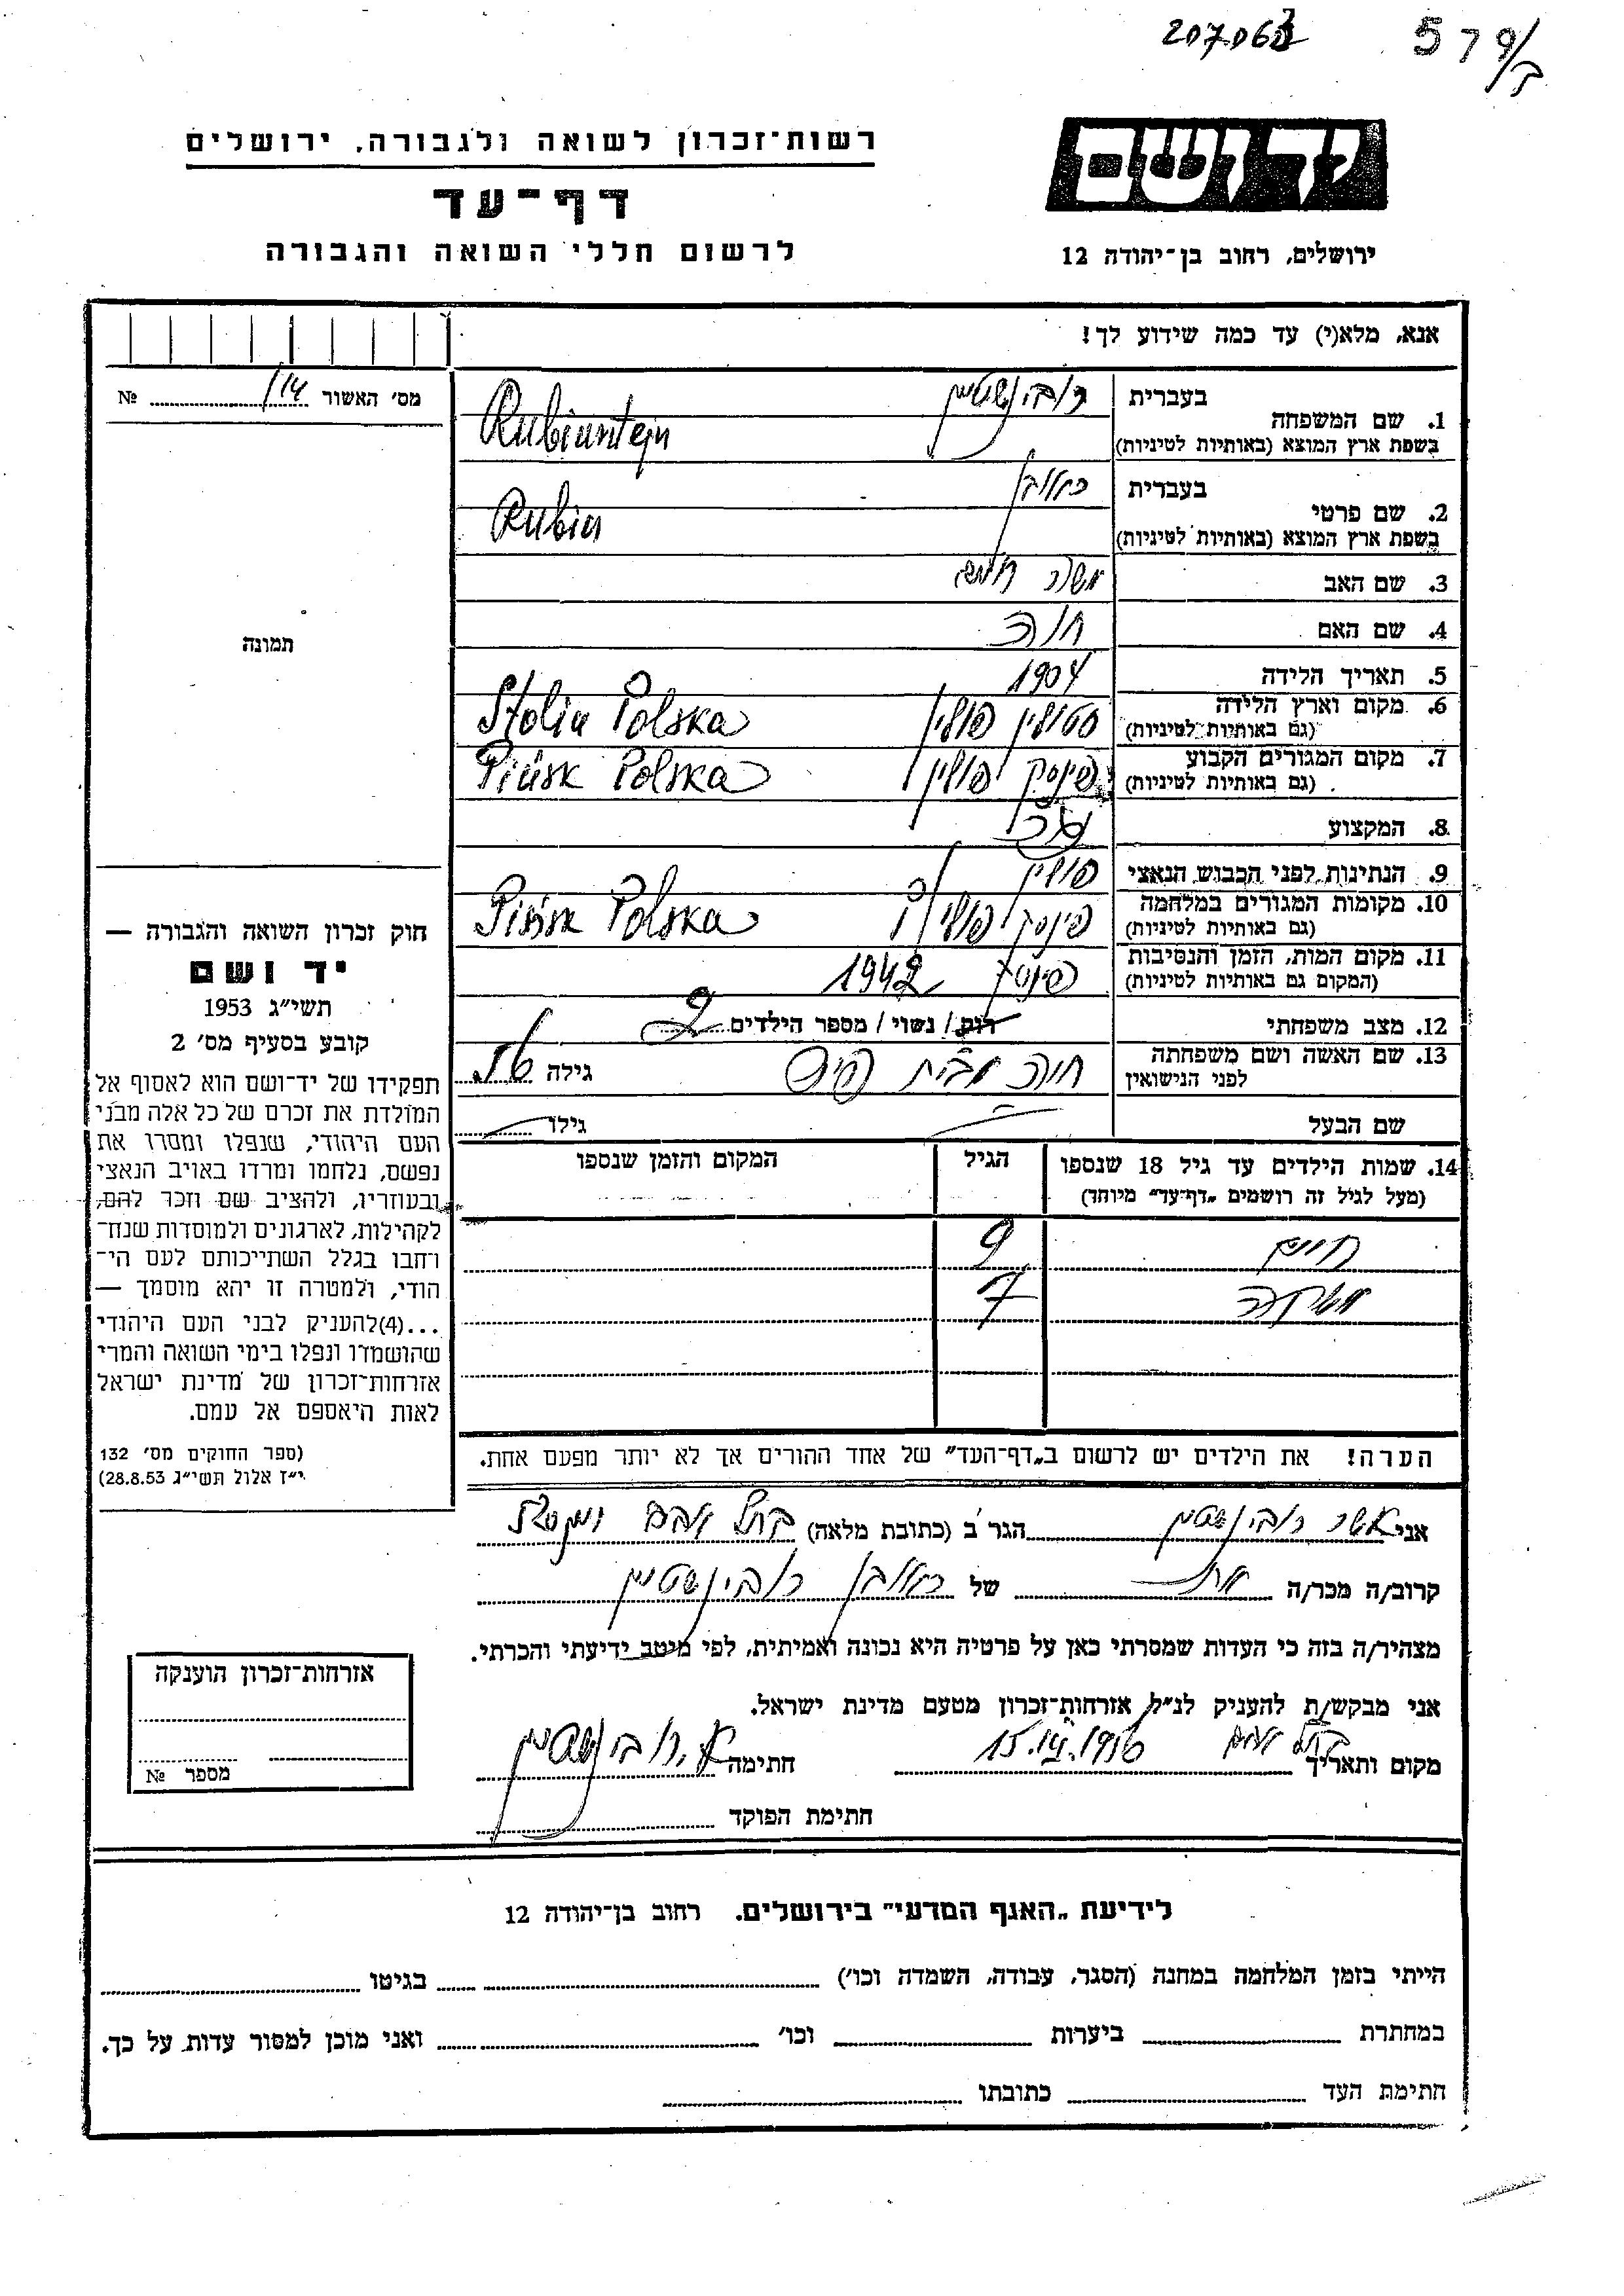 207063
579/ב
יד ושם
ירושלים, רחוב בן־יהודה 12
רשות־זכרון לשואה ולגבורה, ירושלים
דף־עד
לרשום חללי השואה והגבורה
אנא, מלא(י) עד כמה שידוע לך!
מס׳ האשור 114 №
תמונה
חוק זכרון השואה והגבורה —
יד ושם
תשי״ג 1953
קובע בסעיף מס׳ 2
תפקידו של יד־ושם הוא לאסוף אל
המולדת את זכרם של כל אלה מבני
העם היהודי, שנפלו ומסרו את
נפשם, נלחמו ומרדו באויב הנאצי
ובעוזריו, ולהציב שם וזכר להם,
לקהילות, לארגונים ולמוסדות שנח־
רחבו בגלל השתייכותם לעם הי־
הודי, ולמטרה זו יהא מוסמך —
...(4)להעניק לבני העם היהודי
שהושמדו ונפלו בימי השואה והמרי
אזרחות־זכרון של מדינת ישראל
לאות היאספם אל עמם.
(ספר החוקים מס׳ 132
י״ז אלול תשי״ג 28.8.53)
בעברית רובינשטיין
1. שם המשפחה
בשפת ארץ המוצא (באותיות לטיניות) Rubinstejn
בעברית ראובן
2. שם פרטי
בשפת ארץ המוצא (באותיות לטיניות) Rubin
3. שם האב משה
4. שם האם חנה
5. תאריך הלידה 1904
6. מקום וארץ הלידה סטולין פולין Stolin Polska
(גם באותיות לטיניות)
7. מקום המגורים הקבוע פינסק פולין Pińsk Polska
(גם באותיות לטיניות)
8. המקצוע
9. הנתינות לפני הכבוש הנאצי פולין
10. מקומות המגורים במלחמה פינסק פולין Pińsk Polska
(גם באותיות לטיניות)
11. מקום המות, הזמן והנסיבות פינסק 1942
(המקום גם באותיות לטיניות)
12. מצב משפחתי רווק / נשוי / מספר הילדים 2
13. שם האשה ושם משפחתה חנה מבית גילה
לפני הנישואין
שם הבעל — גילו —
14. שמות הילדים עד גיל 18 שנספו הגיל המקום והזמן שנספו
(מעל לגיל זה רושמים „דף־עד״ מיוחד)
חיים 9
7
הערה! את הילדים יש לרשום ב„דף־העד״ של אחד ההורים אך לא יותר מפעם אחת.
אני אשר רובינשטיין הגר ב (כתובת מלאה)
קרוב/ה מכר/ה אח של ראובן רובינשטיין
מצהיר/ה בזה כי העדות שמסרתי כאן על פרטיה היא נכונה ואמיתית, לפי מיטב ידיעתי והכרתי.
אני מבקש/ת להעניק לנ״ל אזרחות־זכרון מטעם מדינת ישראל.
מקום ותאריך 1956 חתימה א. רובינשטיין
חתימת הפוקד
אזרחות־זכרון הוענקה
מספר №
לידיעת „האגף המדעי״ בירושלים. רחוב בן־יהודה 12
הייתי בזמן המלחמה במחנה (הסגר, עבודה, השמדה וכו׳) בגיטו
במחתרת ביערות וכו׳ ואני מוכן למסור עדות על כך.
חתימת העד כתובתו